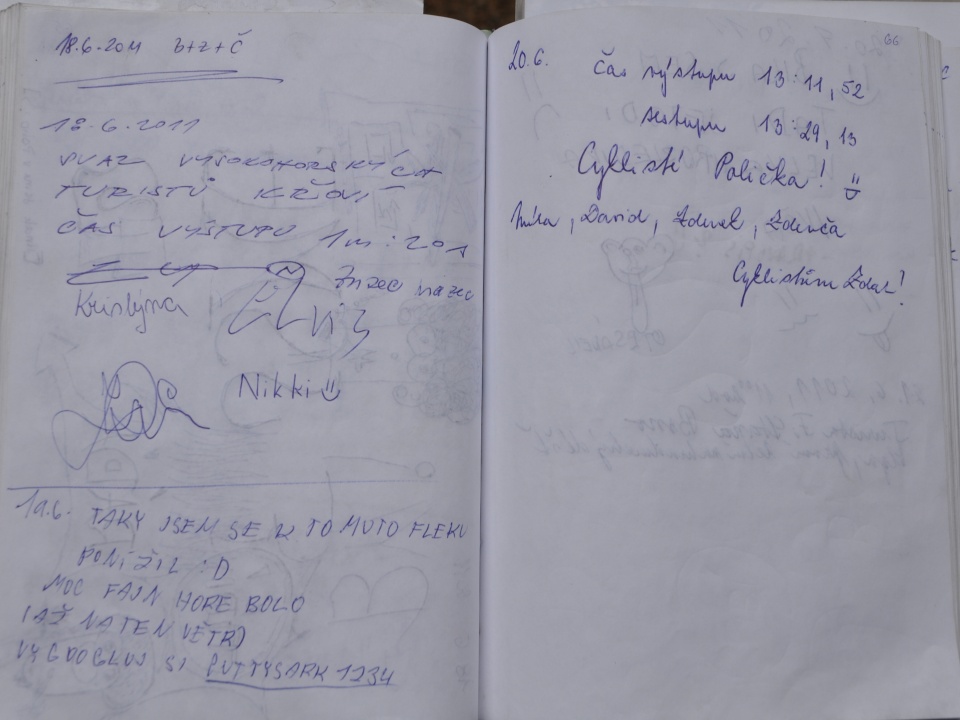 18.6.2011 b+z+č
18.6.2011
SVAZ VYSOKOHORSKÝCH
TURISTŮ KŘOVÍ
ČAS VÝSTUPU 1m:20s
Kristýna
Nikki
19.6. TAKY JSEM SE K TOMUTO FLEKU
PONÍŽIL :D
MOC FAJN HORE BOLO
(AŽ NA TEN VĚTR)
VYGOOGLUJ SI PUTTYSARK 1234
66
20.6. čas výstupu 13:11,52
sestupu 13:29,13
Cyklisté Polička!
Míra, David, Zdenek, Zdenča
Cyklistům Zdar!